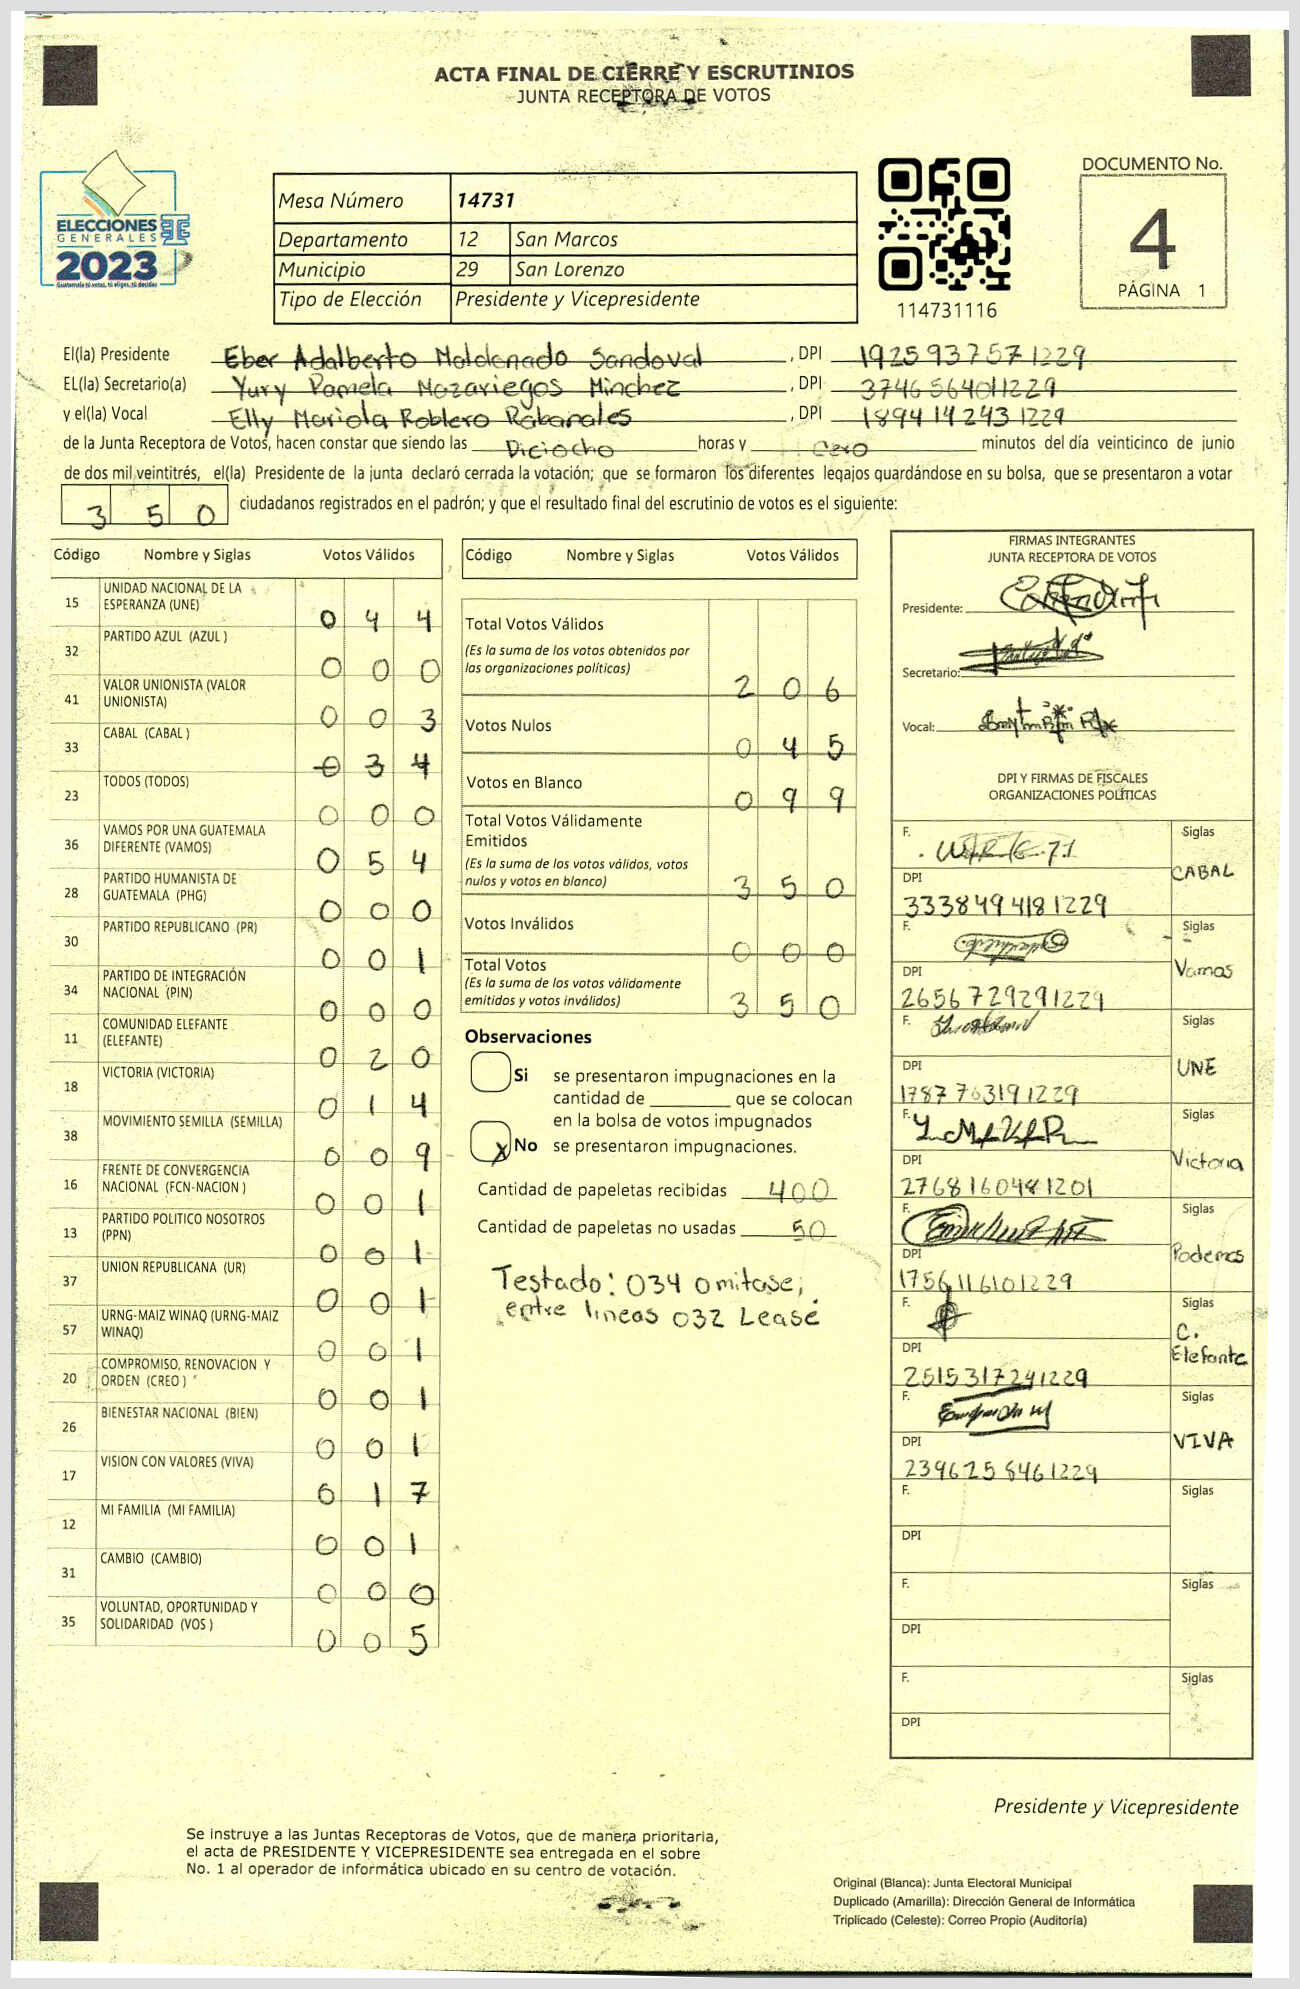 ACTA FINAL DE CIERRE Y ESCRUTINIOS
JUNTA RECEPTORA DE VOTOS
ELECCIONES
GENERALES
2023
Guatemala tú votas, tú eliges, tú decides
Mesa Número 14731
Departamento 12 San Marcos
Municipio 29 San Lorenzo
Tipo de Elección Presidente y Vicepresidente
114731116
DOCUMENTO No.
4
PÁGINA 1
El(la) Presidente Eber Adalberto Maldonado Sandoval, DPI 1925937571229
EL(la) Secretario(a) Yury Pamela Mazariegos Minchez, DPI 3746564011229
y el(la) Vocal Elly Mariola Roblero Rabanales, DPI 1894142431229
de la Junta Receptora de Votos, hacen constar que siendo las Diciocho horas y cero minutos del día veinticinco de junio
de dos mil veintitrés, el(la) Presidente de la junta declaró cerrada la votación; que se formaron los diferentes legajos guardándose en su bolsa, que se presentaron a votar
350 ciudadanos registrados en el padrón; y que el resultado final del escrutinio de votos es el siguiente:
Código Nombre y Siglas Votos Válidos
15 UNIDAD NACIONAL DE LA ESPERANZA (UNE) 0 4 4
32 PARTIDO AZUL (AZUL ) 0 0 0
41 VALOR UNIONISTA (VALOR UNIONISTA) 0 0 3
33 CABAL (CABAL ) 0 3 4
23 TODOS (TODOS) 0 0 0
36 VAMOS POR UNA GUATEMALA DIFERENTE (VAMOS) 0 5 4
28 PARTIDO HUMANISTA DE GUATEMALA (PHG) 0 0 0
30 PARTIDO REPUBLICANO (PR) 0 0 1
34 PARTIDO DE INTEGRACIÓN NACIONAL (PIN) 0 0 0
11 COMUNIDAD ELEFANTE (ELEFANTE) 0 2 0
18 VICTORIA (VICTORIA) 0 1 4
38 MOVIMIENTO SEMILLA (SEMILLA) 0 0 9
16 FRENTE DE CONVERGENCIA NACIONAL (FCN-NACION ) 0 0 1
13 PARTIDO POLITICO NOSOTROS (PPN) 0 0 1
37 UNION REPUBLICANA (UR) 0 0 1
57 URNG-MAIZ WINAQ (URNG-MAIZ WINAQ) 0 0 1
20 COMPROMISO, RENOVACION Y ORDEN (CREO ) 0 0 1
26 BIENESTAR NACIONAL (BIEN) 0 0 1
17 VISION CON VALORES (VIVA) 0 1 7
12 MI FAMILIA (MI FAMILIA) 0 0 1
31 CAMBIO (CAMBIO) 0 0 0
35 VOLUNTAD, OPORTUNIDAD Y SOLIDARIDAD (VOS ) 0 0 5
Código Nombre y Siglas Votos Válidos
Total Votos Válidos
(Es la suma de los votos obtenidos por
las organizaciones políticas) 2 0 6
Votos Nulos 0 4 5
Votos en Blanco 0 9 9
Total Votos Válidamente
Emitidos
(Es la suma de los votos válidos, votos
nulos y votos en blanco) 3 5 0
Votos Inválidos 0 0 0
Total Votos
(Es la suma de los votos válidamente
emitidos y votos inválidos) 3 5 0
Observaciones
Si se presentaron impugnaciones en la
cantidad de ________ que se colocan
en la bolsa de votos impugnados
X No se presentaron impugnaciones.
Cantidad de papeletas recibidas 400
Cantidad de papeletas no usadas 50
Testado: 034 omitase,
entre lineas 032 Lease
FIRMAS INTEGRANTES
JUNTA RECEPTORA DE VOTOS
Presidente:
Secretario:
Vocal:
DPI Y FIRMAS DE FISCALES
ORGANIZACIONES POLÍTICAS
F. Siglas
CABAL
DPI
3338494181229
F. Siglas
Vamos
DPI
2656729291229
F. Siglas
UNE
DPI
1787763191229
F. Siglas
Victoria
DPI
2768160481201
F. Siglas
Podemos
DPI
1756116101229
F. Siglas
C.
Elefante
DPI
2515317241229
F. Siglas
VIVA
DPI
2396258461229
F. Siglas
DPI
F. Siglas
DPI
F. Siglas
DPI
Presidente y Vicepresidente
Se instruye a las Juntas Receptoras de Votos, que de manera prioritaria,
el acta de PRESIDENTE Y VICEPRESIDENTE sea entregada en el sobre
No. 1 al operador de informática ubicado en su centro de votación.
Original (Blanca): Junta Electoral Municipal
Duplicado (Amarilla): Dirección General de Informática
Triplicado (Celeste): Correo Propio (Auditoría)